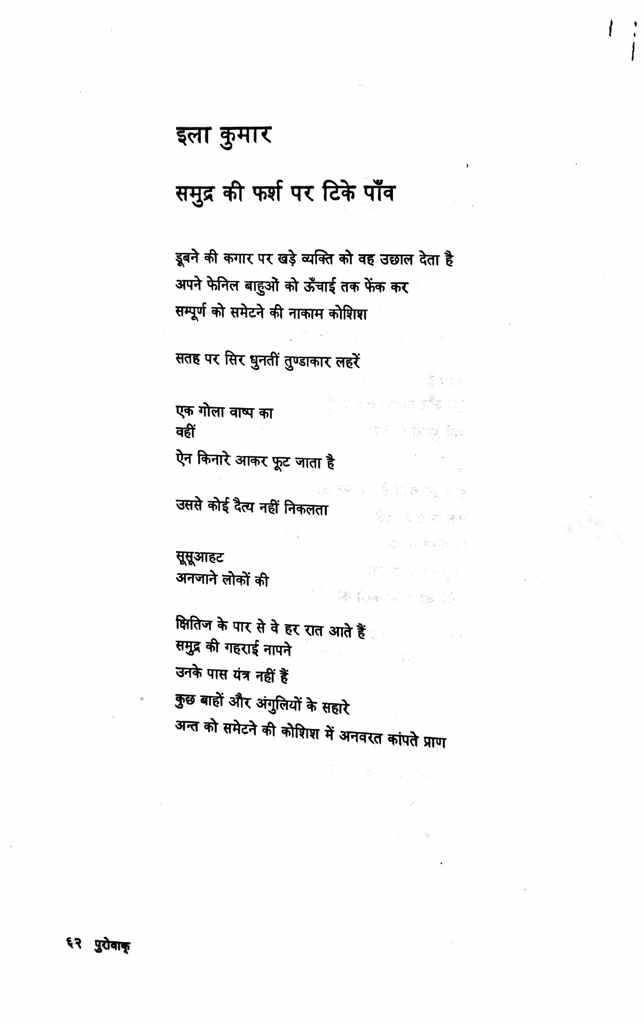 इला कुमार
समुद्र की फर्श पर टिके पाँव
डूबने की कगार पर खड़े व्यक्ति को वह उछाल देता है
अपने फेनिल बाहुओं को ऊँचाई तक फेंक कर
सम्पूर्ण को समेटने की नाकाम कोशिश
सतह पर सिर धुनतीं तुण्डाकार लहरें
एक गोला वाष्प का
वहीं
ऐन किनारे आकर फूट जाता है
उससे कोई दैत्य नहीं निकलता
सूसूआहट
अनजाने लोकों की
क्षितिज के पार से वे हर रात आते हैं
समुद्र की गहराई नापने
उनके पास यंत्र नहीं हैं
कुछ बाहों और अंगुलियों के सहारे
अन्त को समेटने की कोशिश में अनवरत कांपते प्राण
६२ पुरोवाक्